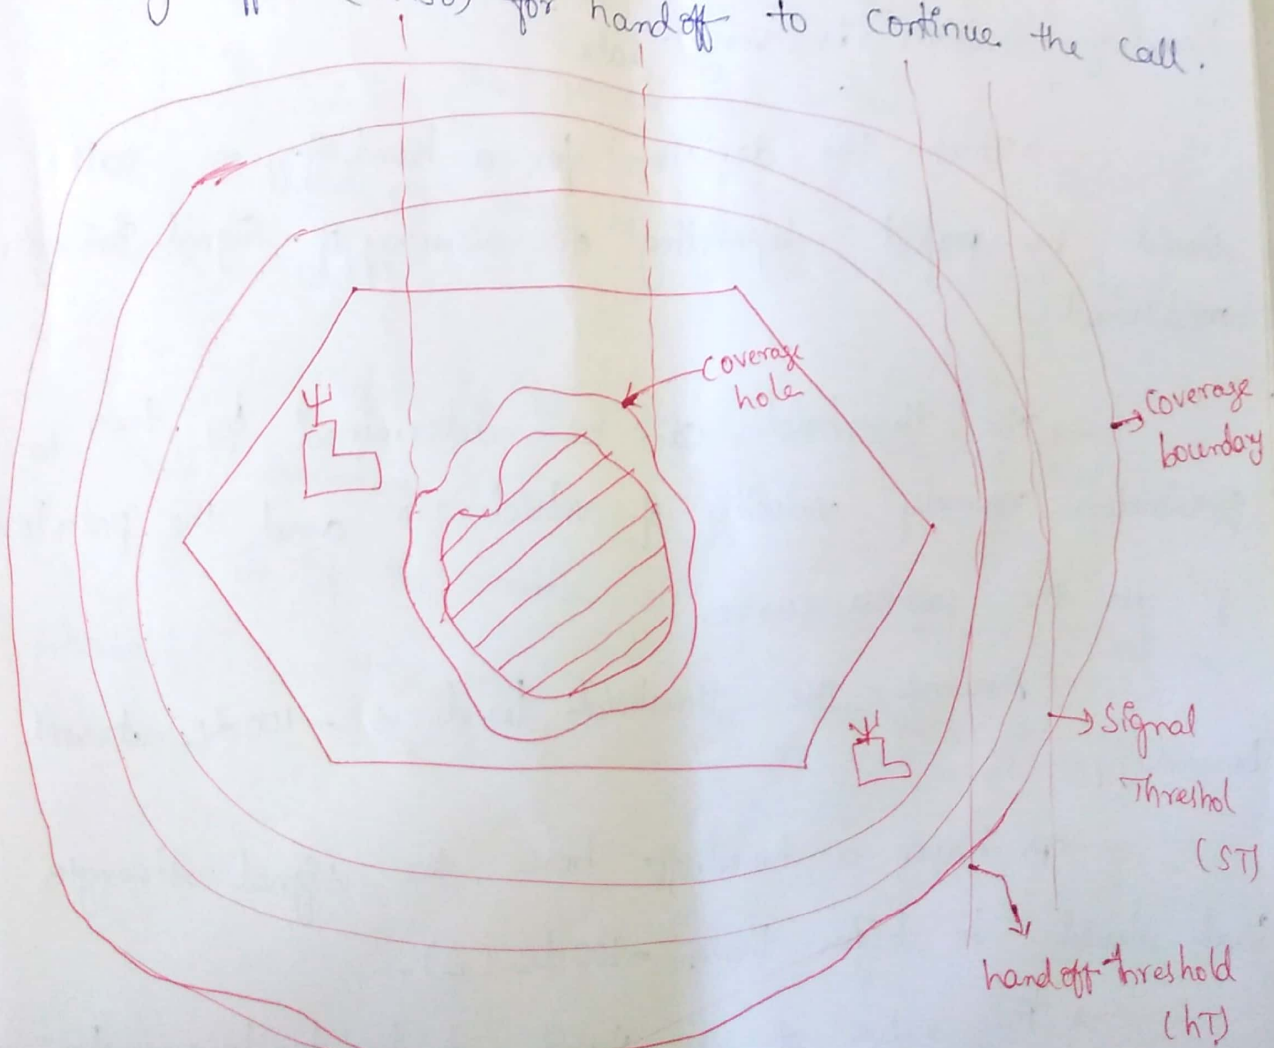 for handoff to continue the call.
coverage
hole
coverage
bourday
Signal
Threshol
(ST)
handoff threshold
(hT)